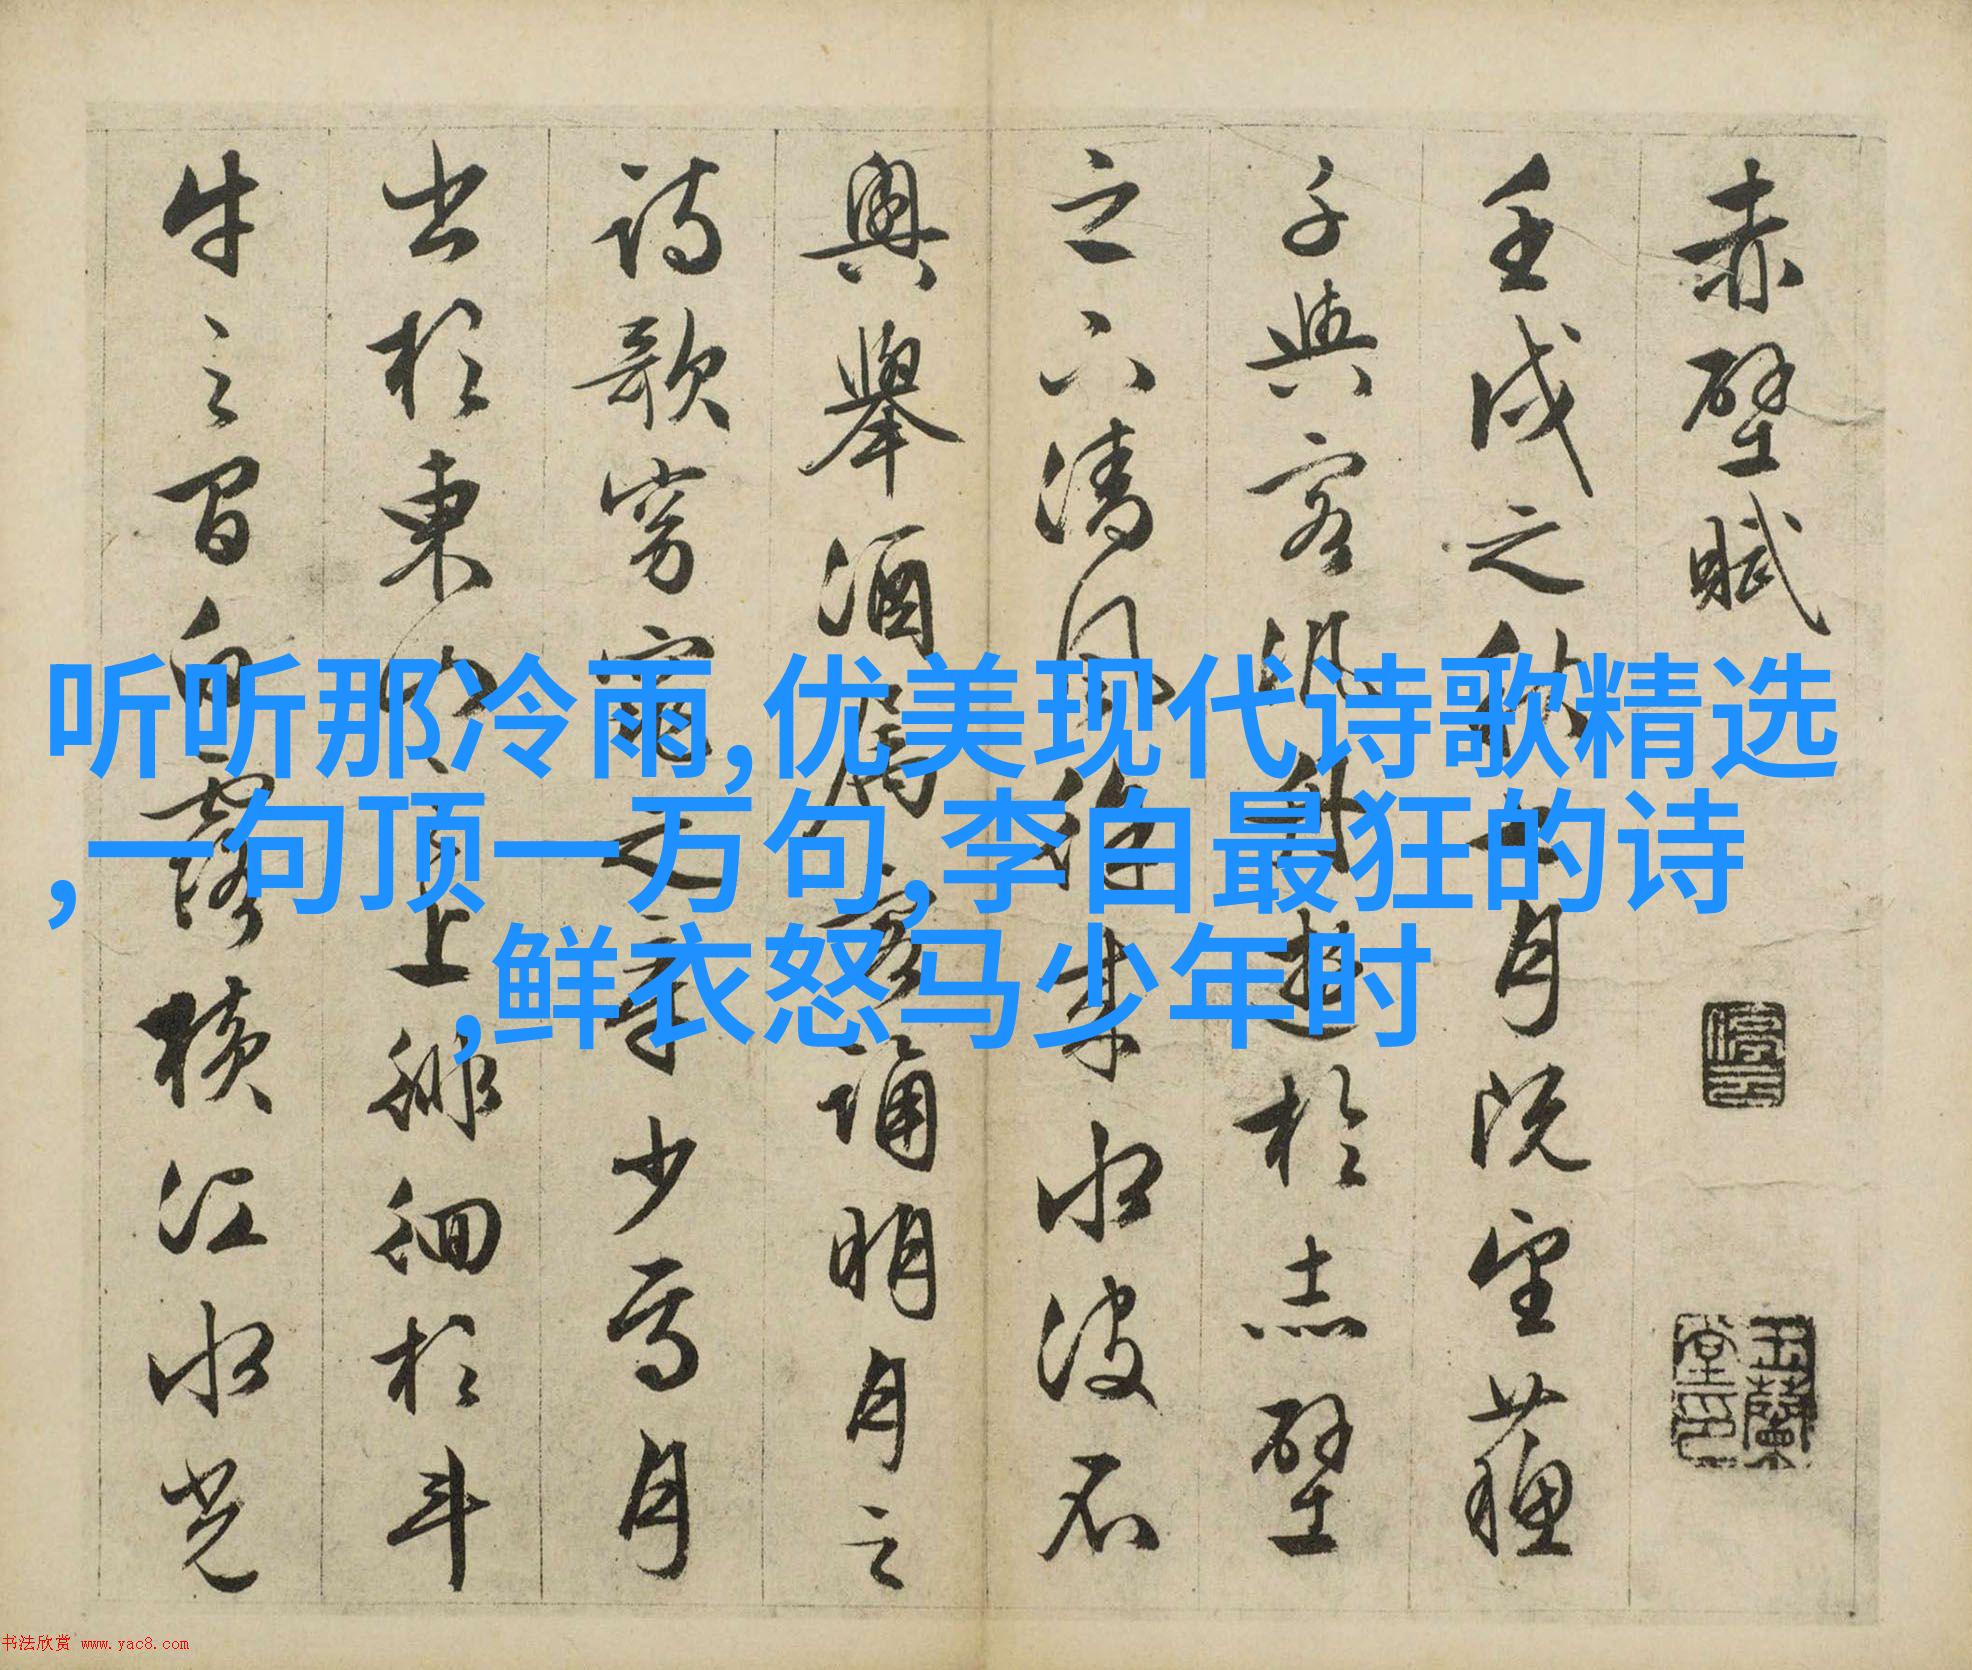 赤壁賦
壬戌之秋七月既望蘇
子與客泛舟遊於赤壁
之下清風徐来水波不
興舉酒属客誦明月之
詩歌窈窕之章少焉月
出於東山之上徘徊於斗
牛之間白露橫江水光
停雲
玉蘭堂印
听听那冷雨,优美现代诗歌精选
,一句顶一万句,李白最狂的诗
,鲜衣怒马少年时
书法欣赏 www.yac8.com